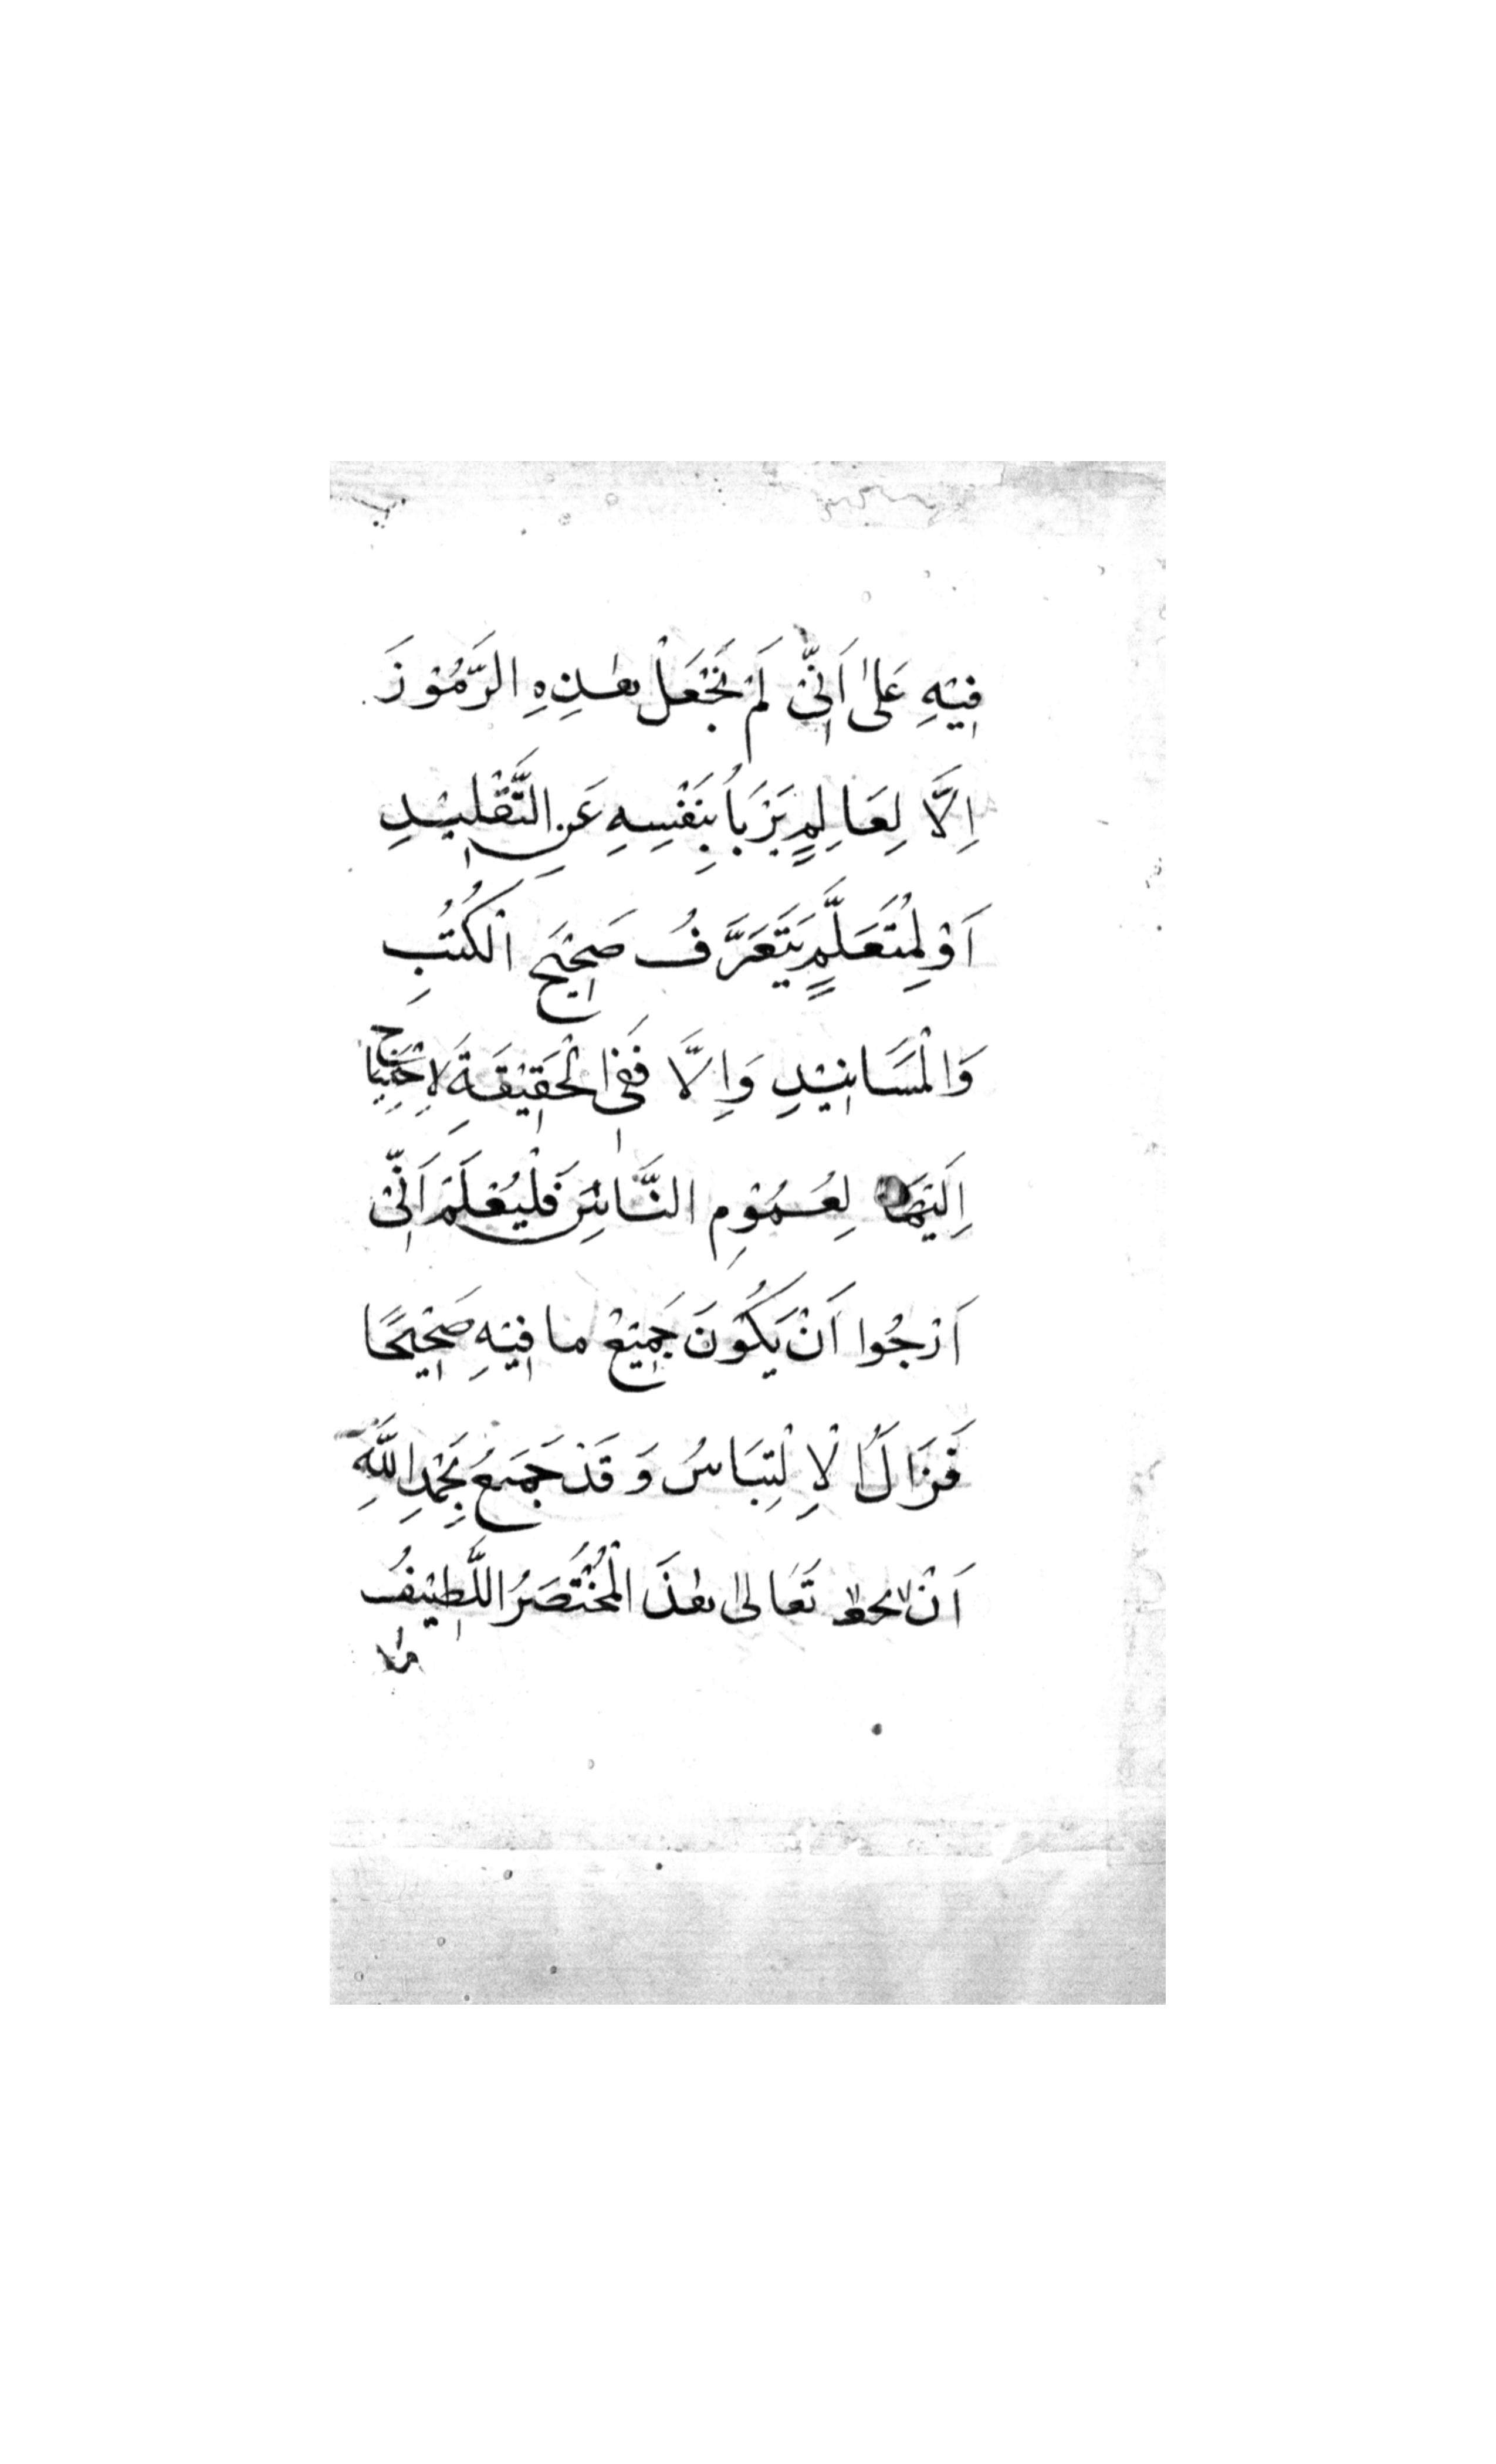 فِيْهِ عَلىٰ اَنِّيْ لَمْ نَجْعَلْ هٰذِهِ الرَّمُوْزَ
اِلَّا لِعَالِمٍ يَرْبَأُ بِنَفْسِهِ عَنِ التَّقْلِيْدِ
اَوْ لِمُتَعَلِّمٍ يَتَعَرَّفُ صَحِيْحَ الْكُتُبِ
وَالْمَسَانِيْدِ وَاِلَّا فَفِى الْحَقِيْقَةِ لَا احْتِيَاجَ
اِلَيْهَا لِعُمُوْمِ النَّاسِ فَلْيُعْلَمَ اَنِّيْ
اَرْجُوا اَنْ يَكُوْنَ جَمِيْعُ ما فِيْهِ صَحِيْحًا
فَزَالَ الْاِلْتِبَاسُ وَقَدْ جَمَعَ بِحَمْدِ اللّٰهِ
تَعَالىٰ هٰذَ الْمُخْتَصَرُ اللَّطِيْفُ